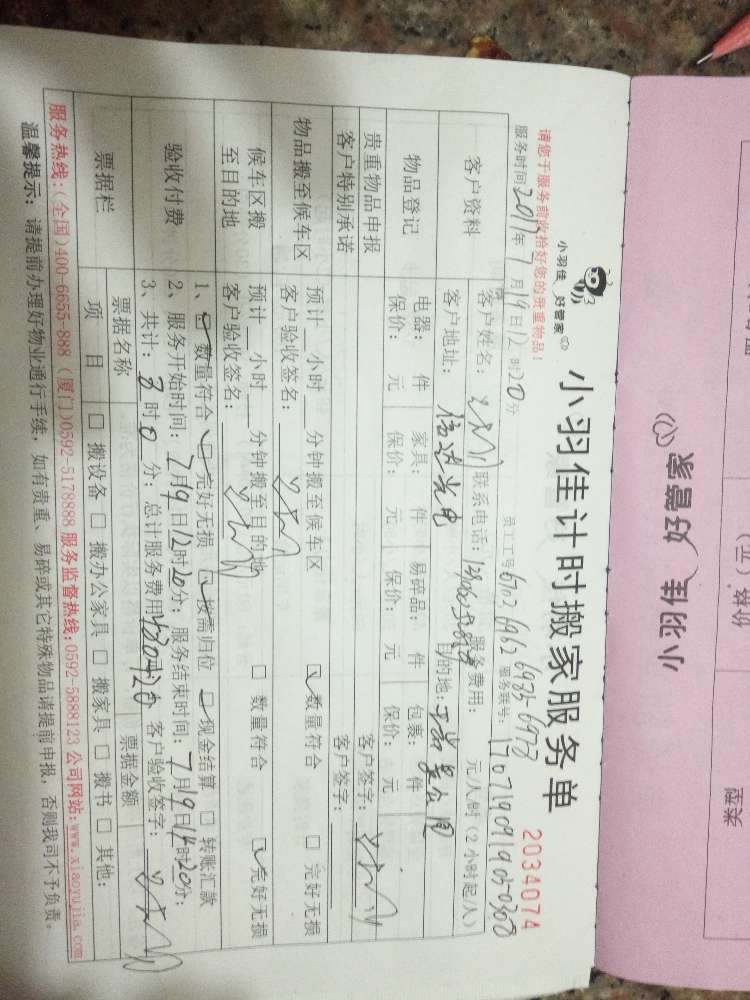 小羽佳 好管家
小羽佳计时搬家服务单
2034074
请您于服务前收拾好您的贵重物品!
服务时间2017年7月19日12时20分 员工工号6702 6962 6935 6973 服务票号:
客户资料
客户姓名: 联系电话: 服务费用: 元/人/时(2小时起/人)
客户地址: 信达光电 目的地:
物品登记
电器: 件 家具: 件 易碎品: 件 包裹: 件
保价: 元 保价: 元 保价: 元 保价: 元
贵重物品申报 客户签字:
客户特别承诺 客户签字:
物品搬至候车区
预计 小时 分钟搬至候车区 数量符合 完好无损
客户验收签名:
候车区搬至目的地
预计 小时 分钟搬至目的地 数量符合 完好无损
客户验收签名:
验收付费
1、 数量符合 完好无损 按需归位 现金结算 转账汇款
2、服务开始时间: 7月19日12时20分; 服务结束时间: 7月19日14时20分;
3、共计: 时0分; 总计服务费用 客户验收签字:
票据栏
票据名称 票据金额
项 目 搬设备 搬办公家具 搬家具 搬书 其他:
服务热线:(全国)400-6655-888 (厦门)0592-5178888 服务监督热线:0592-5888123 公司网站:www.xiaoyujia.com
温馨提示: 请提前办理好物业通行手续, 如有贵重、易碎或其它特殊物品请提前申报, 否则我司不予负责。
小羽佳 好管家
价格(元)
类型